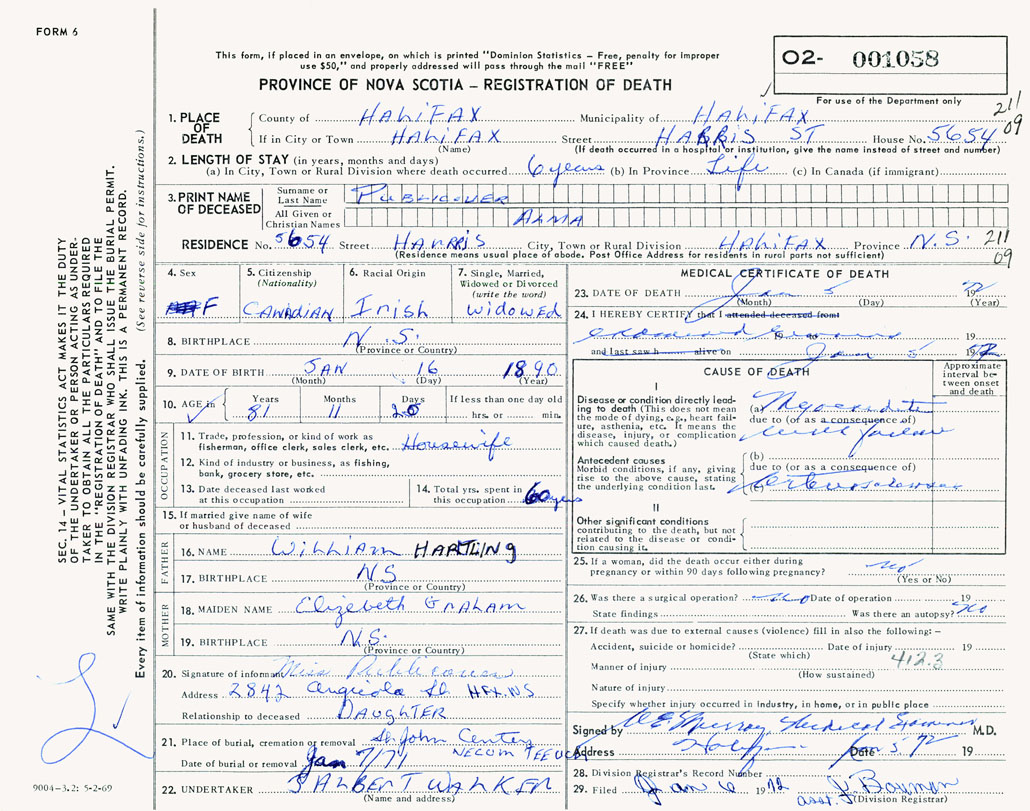 FORM 6
This form, if placed in an envelope, on which is printed "Dominion Statistics – Free, penalty for improper
use $50," and properly addressed will pass through the mail "FREE"
PROVINCE OF NOVA SCOTIA – REGISTRATION OF DEATH
O2- 001058
For use of the Department only
211
09
1. PLACE OF DEATH
County of HALIFAX Municipality of HALIFAX
If in City or Town HALIFAX Street HARRIS ST House No. 5654
(Name) (If death occurred in a hospital or institution, give the name instead of street and number)
2. LENGTH OF STAY (in years, months and days)
(a) In City, Town or Rural Division where death occurred 6 years (b) In Province Life (c) In Canada (if immigrant)
3. PRINT NAME OF DECEASED
Surname or Last Name PUBLICOVER
All Given or Christian Names ALMA
RESIDENCE No. 5654 Street HARRIS City, Town or Rural Division HALIFAX Province N.S. 211
09
(Residence means usual place of abode. Post Office Address for residents in rural parts not sufficient)
4. Sex F
5. Citizenship (Nationality) CANADIAN
6. Racial Origin Irish
7. Single, Married, Widowed or Divorced (write the word) Widowed
8. BIRTHPLACE N.S.
(Province or Country)
9. DATE OF BIRTH JAN 16 1890
(Month) (Day) (Year)
10. AGE in Years 81 Months 11 Days 20 If less than one day old hrs. or min.
OCCUPATION
11. Trade, profession, or kind of work as
fisherman, office clerk, sales clerk, etc. Housewife
12. Kind of industry or business, as fishing,
bank, grocery store, etc.
13. Date deceased last worked
at this occupation
14. Total yrs. spent in
this occupation 60 years
15. If married give name of wife
or husband of deceased
FATHER
16. NAME William HARTLING
17. BIRTHPLACE NS
(Province or Country)
MOTHER
18. MAIDEN NAME Elizebeth GRAHAM
19. BIRTHPLACE N.S.
(Province or Country)
20. Signature of informant Miss Publicover
Address 2842 St HFX NS
Relationship to deceased DAUGHTER
21. Place of burial, cremation or removal St. John
NECUM TEEUCH
Date of burial or removal Jan 7/71
22. UNDERTAKER J ALBERT WALKER
(Name and address)
MEDICAL CERTIFICATE OF DEATH
23. DATE OF DEATH Jan 5 1972
(Month) (Day) (Year)
24. I HEREBY CERTIFY that I attended deceased from
examined 19
and last saw h alive on Jan 5 1972
CAUSE OF DEATH
Approximate interval between onset and death
I
Disease or condition directly leading
to death (This does not mean
the mode of dying, e.g., heart failure,
asthenia, etc. It means the
disease, injury, or complication
which caused death.)
(a)
due to (or as a consequence of)
Antecedent causes
Morbid conditions, if any, giving
rise to the above cause, stating
the underlying condition last.
(b)
due to (or as a consequence of)
(c) arteriosclerosis
II
Other significant conditions
contributing to the death, but not
related to the disease or condition
causing it.
25. If a woman, did the death occur either during
pregnancy or within 90 days following pregnancy? no
(Yes or No)
26. Was there a surgical operation? no Date of operation 19
State findings Was there an autopsy? no
27. If death was due to external causes (violence) fill in also the following: –
Accident, suicide or homicide? Date of injury 19
(State which) 412.3
Manner of injury
(How sustained)
Nature of injury
Specify whether injury occurred in industry, in home, or in public place
Signed by Murray Medical Examiner M.D.
Address Halifax Date Jan 5 72 19
28. Division Registrar's Record Number
29. Filed Jan 6 1972 J. Bowman
asst. (Division Registrar)
SEC. 14 – VITAL STATISTICS ACT MAKES IT THE DUTY
OF THE UNDERTAKER OR PERSON ACTING AS UNDERTAKER
TO OBTAIN ALL THE PARTICULARS REQUIRED
IN THE "REGISTRATION OF DEATH" AND TO FILE THE
SAME WITH THE DIVISION REGISTRAR WHO SHALL ISSUE THE BURIAL PERMIT.
WRITE PLAINLY WITH UNFADING INK. THIS IS A PERMANENT RECORD.
Every item of information should be carefully supplied. (See reverse side for instructions.)
9004-3.2: 5-2-69